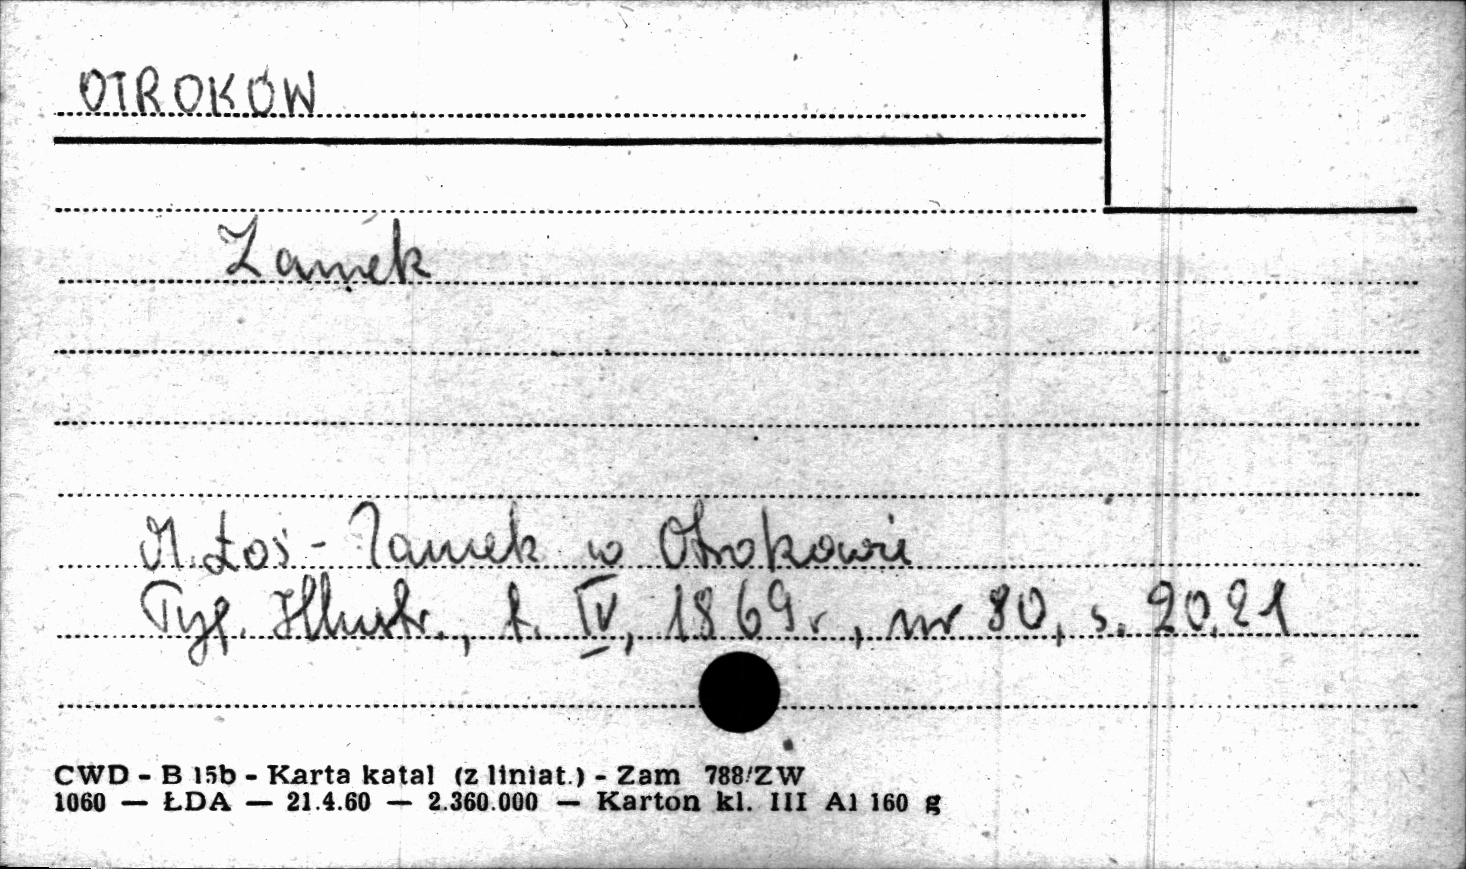 OTROKÓW
Zamek
M. Łoś - Zamek w Otrokowie
Tyg. Illustr., t. IV, 1869 r, nr 80, s. 20,21
CWD - B 15b - Karta katal (z liniat.) - Zam 788/ZW
1060 — ŁDA — 21.4.60 — 2.360.000 — Karton kl. III A1 160 g